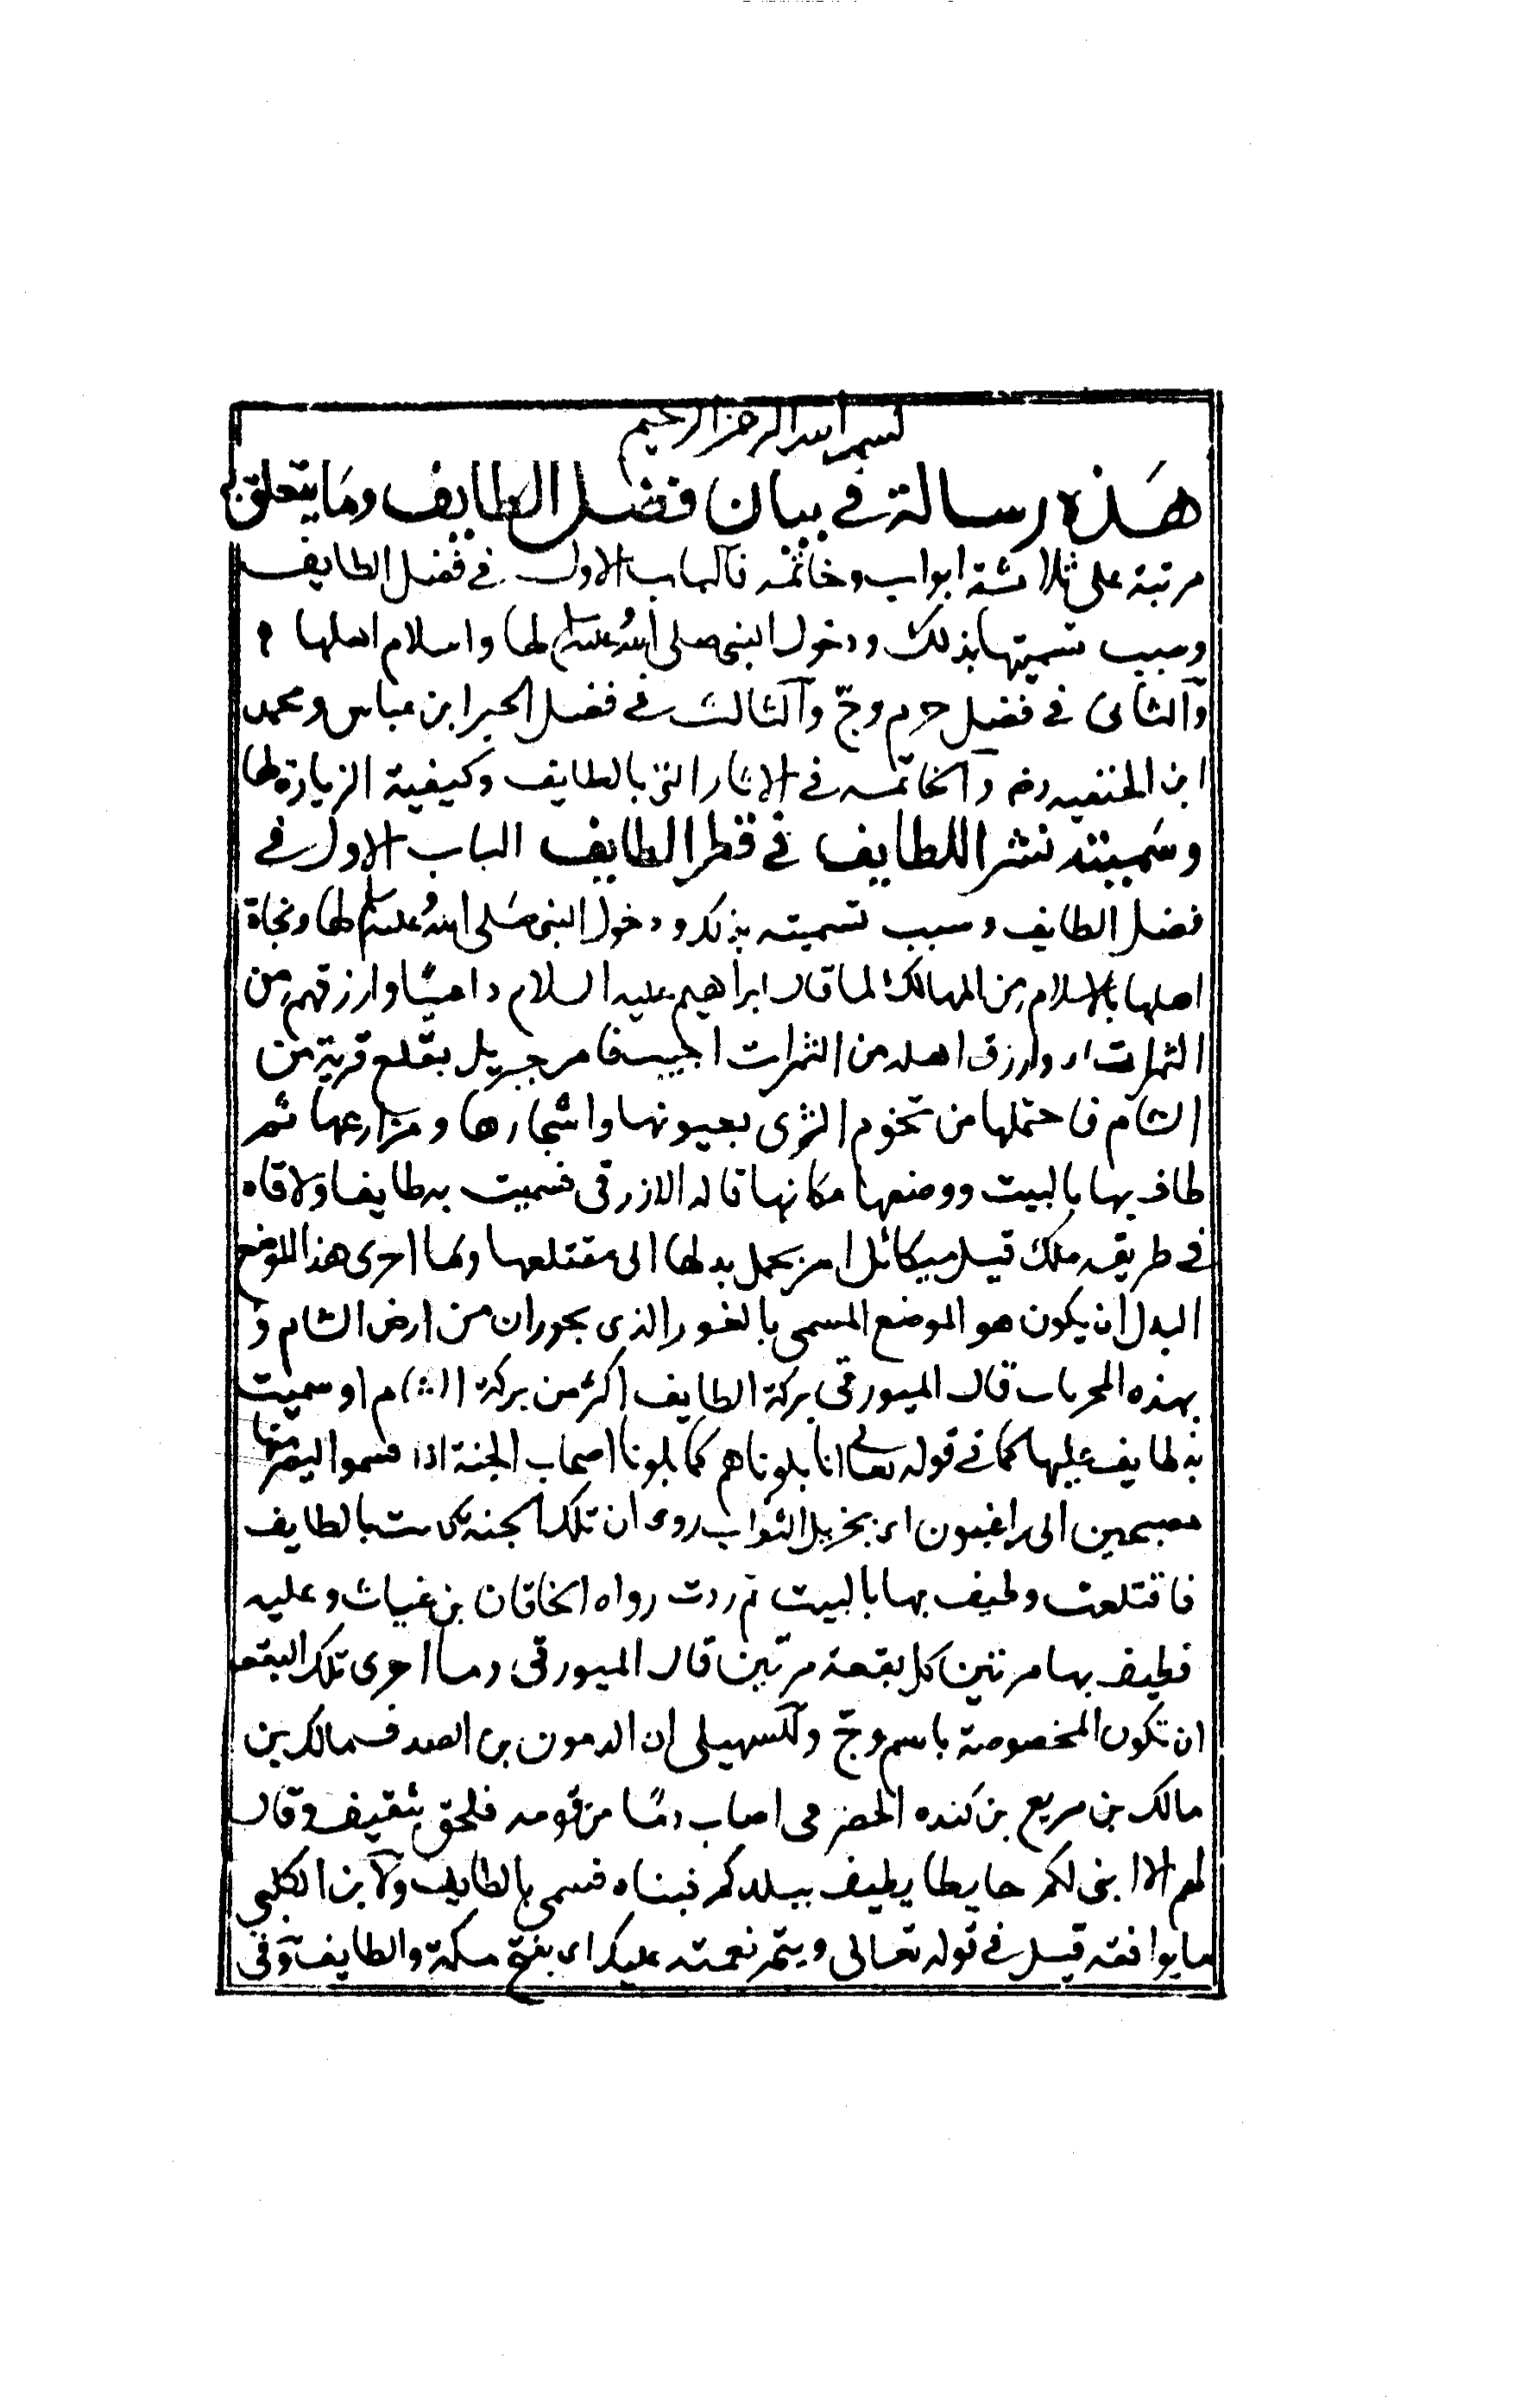 بسم الله الرحمن الرحيم
هذه رسالة في بيان فضل الطايف وما يتعلق به
مرتبة على ثلاثة ابواب وخاتمه فالباب الاول في فضل الطايف
وسبب تسميتها بذلك ودخول النبى صلى الله عليه وسلم لها واسلام اهلها
والثانى في فضل حرم وجّ والثالث في فضل الحبر ابن عباس ومحمد
ابن الحنفيه رضـ والخاتمه في الاثار التى بالطايف وكيفية الزيارة لها
وسميته نشر اللطايف في قطر الطايف الباب الاول في
فضل الطايف وسبب تسميته بذلك ودخول النبى صلى الله عليه وسلم لها ونجاة
اهلها بالاسلام من المهالك لما قال ابراهيم عليه السلام داعيًا وارزقهم من
الثمرات او وارزق اهله من الثمرات اجيب فامر جبريل بقلع قرية من
الشام فاحتملها من تخوم الثرى بعيونها واشجارها ومزارعها ثم
طاف بها بالبيت ووضعها مكانها قاله الازرقى فسميت به طايفا ولاقاه
في طريقه ملك قيل ميكائل امر بحمل بدلها الى مقتلعها وما احرى هذا الموضع
البدل ان يكون هو الموضع المسمى بالغور الذى بحوران من ارض الشام و
بهذه قال الميورقى بركة الطايف اكثر من بركة الشام او سميت
به لطايف عليها كما في قوله تعالى انا بلوناهم كما بلونا اصحاب الجنة اذ اقسموا ليصرمنها
مصبحين الى راغبون اى بجزيل الثواب روى ان تلك الجنة كانت بالطايف
فاقتلعت وطيف بها بالبيت ثم ردت رواه الخاقان بن غياث وعليه
فطيف بها مرتين كل بقعة مرتين قال الميورقى وما احرى تلك البقعه
ان تكون المخصوصة باسم وجّ وللسهيلى ان الدمون بن الصدف مالك بن
مالك بن مريع بن كنده الحضرمى اصاب دمًا من قومه فلحق بثقيف وقال
لهم الا ابنى لكم حايطا يطيف ببلدكم فبناه فسمى بالطايف ولابن الكلبي
ما يوافقه قيل في قوله تعالى ويتم نعمته عليك اى بفتح مكة والطايف وفى